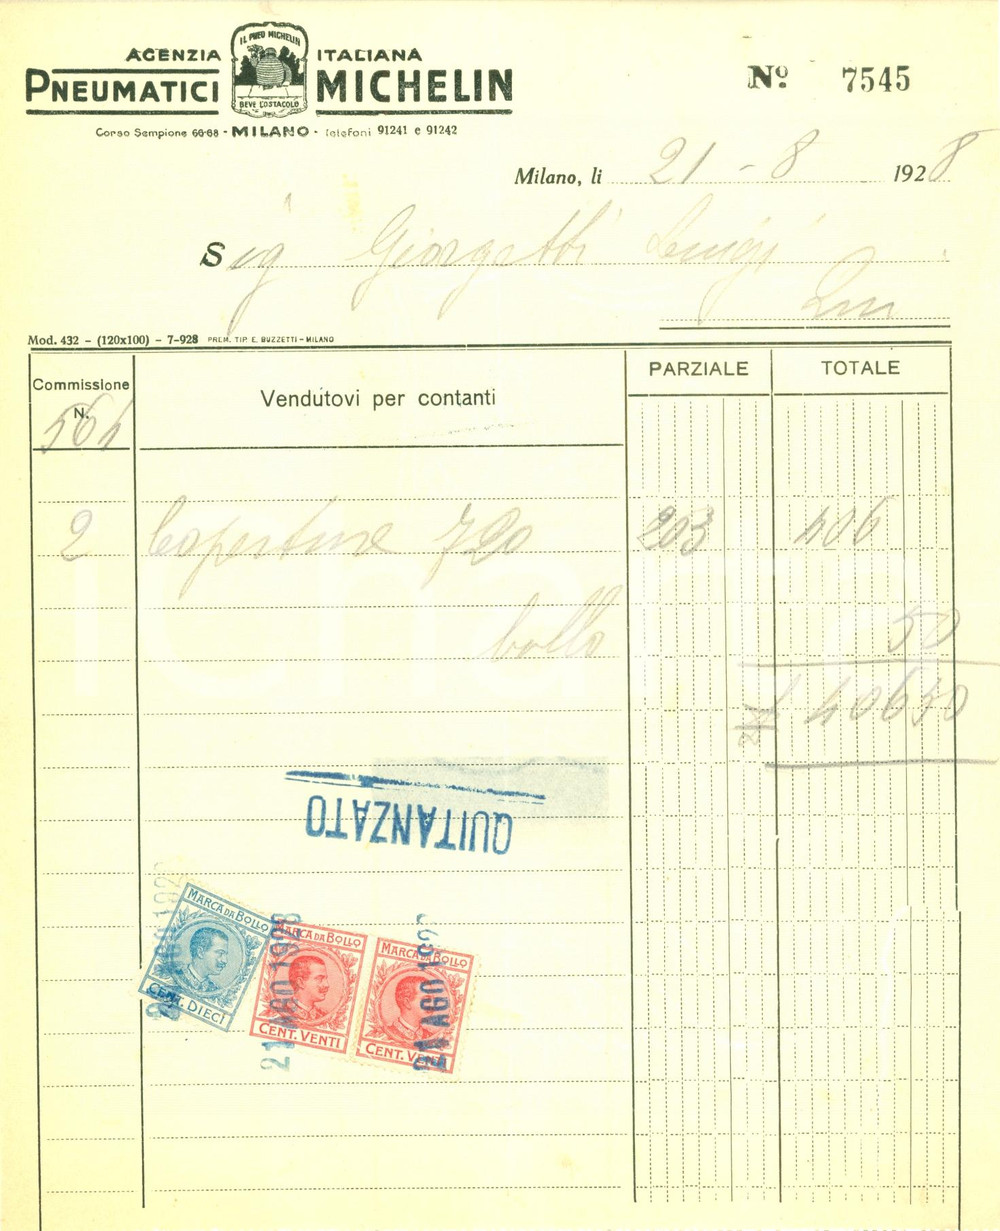 AGENZIA ITALIANA
PNEUMATICI MICHELIN
IL PNEU MICHELIN
BEVE L'OSTACOLO
Corso Sempione 66-68 - MILANO - Telefoni 91241 e 91242
Nº 7545
Milano, li 21 - 8 1928
Sig Giorgetti Luigi
Mod. 432 - (120x100) - 7-928 PREM. TIP. E. BUZZETTI - MILANO
Commissione
N.
564
Vendutovi per contanti
PARZIALE
TOTALE
2 Copertine 720 203 406
bollo 50
£ 40650
QUITANZATO
MARCA DA BOLLO
CENT. DIECI
MARCA DA BOLLO
CENT. VENTI
21 AGO 1928
MARCA DA BOLLO
CENT. VENTI
21 AGO 192